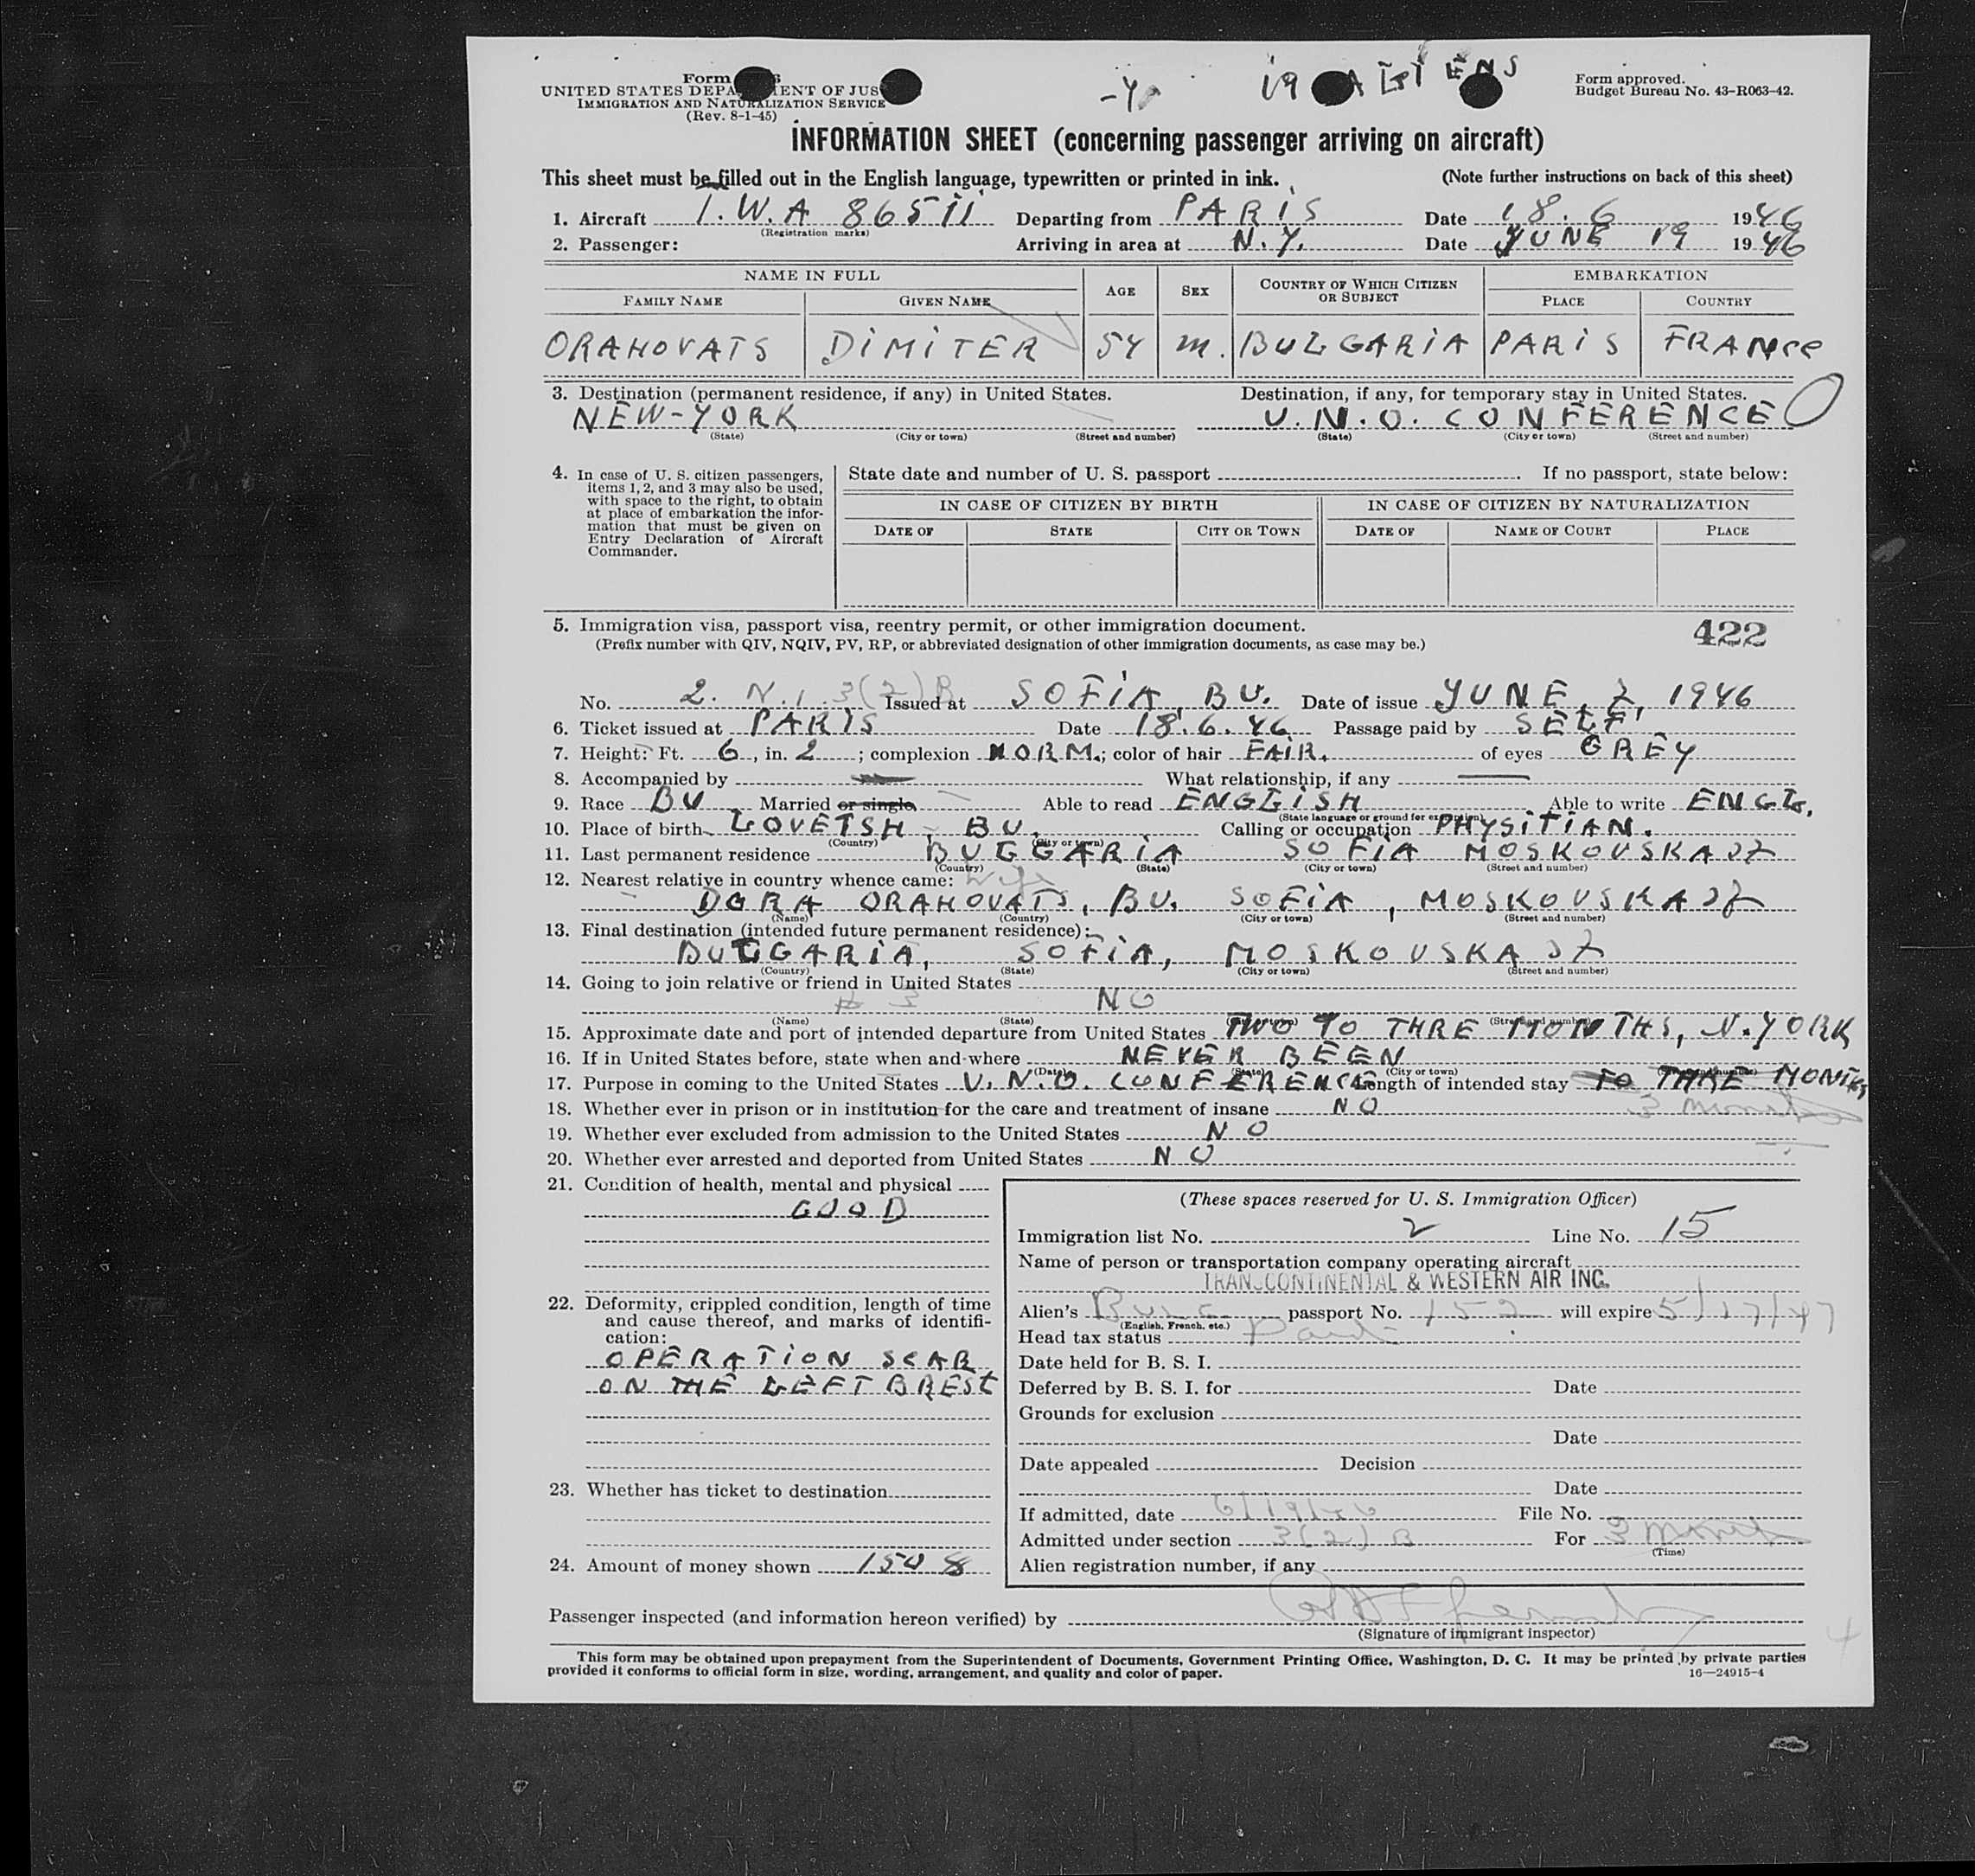 Form
UNITED STATES DEPARTMENT OF JUSTICE
IMMIGRATION AND NATURALIZATION SERVICE
(Rev. 8-1-45)
19 ALIENS
Form approved.
Budget Bureau No. 43-R063-42.
INFORMATION SHEET (concerning passenger arriving on aircraft)
This sheet must be filled out in the English language, typewritten or printed in ink. (Note further instructions on back of this sheet)
1. Aircraft T.W.A 86511 Departing from PARIS Date 18.6 1946
(Registration marks)
2. Passenger: Arriving in area at N.Y. Date YUNE 19 1946
NAME IN FULL AGE SEX COUNTRY OF WHICH CITIZEN OR SUBJECT EMBARKATION
FAMILY NAME GIVEN NAME PLACE COUNTRY
ORAHOVATS DIMITER 54 M. BULGARIA PARIS FRANCE
3. Destination (permanent residence, if any) in United States. Destination, if any, for temporary stay in United States.
NEW-YORK U.N.O. CONFERENCE
(State) (City or town) (Street and number) (State) (City or town) (Street and number)
4. In case of U. S. citizen passengers, items 1, 2, and 3 may also be used, with space to the right, to obtain at place of embarkation the information that must be given on Entry Declaration of Aircraft Commander.
State date and number of U. S. passport . If no passport, state below:
IN CASE OF CITIZEN BY BIRTH IN CASE OF CITIZEN BY NATURALIZATION
DATE OF STATE CITY OR TOWN DATE OF NAME OF COURT PLACE
5. Immigration visa, passport visa, reentry permit, or other immigration document.
422
(Prefix number with QIV, NQIV, PV, RP, or abbreviated designation of other immigration documents, as case may be.)
No. 2. N.I. 3(2)B Issued at SOFIA, BU. Date of issue YUNE, 2, 1946
6. Ticket issued at PARIS Date 18.6.46 Passage paid by SELF
7. Height: Ft. 6, in. 2; complexion NORM.; color of hair FAIR. of eyes GREY
8. Accompanied by What relationship, if any
9. Race BU Married or single Able to read ENGLISH Able to write ENGL.
(State language or ground for exemption)
10. Place of birth LOVETSH, BU. Calling or occupation PHYSITIAN.
(Country) (City or town)
11. Last permanent residence BULGARIA SOFIA MOSKOVSKA
(Country) (State) (City or town) (Street and number)
12. Nearest relative in country whence came: Wife
DORA ORAHOVATS, BU. SOFIA, MOSKOVSKA
(Name) (Country) (City or town) (Street and number)
13. Final destination (intended future permanent residence):
BULGARIA, SOFIA, MOSKOVSKA
(Country) (State) (City or town) (Street and number)
14. Going to join relative or friend in United States
# 3 NO
(Name) (State) (City or town) (Street and number)
15. Approximate date and port of intended departure from United States TWO TO THRE MONTHS, N.YORK
16. If in United States before, state when and where NEVER BEEN
(Date) (State) (City or town) (Street and number)
17. Purpose in coming to the United States U.N.O. CONFERENCE Length of intended stay TO THRE MONTHS
3 months
18. Whether ever in prison or in institution for the care and treatment of insane NO
19. Whether ever excluded from admission to the United States NO
20. Whether ever arrested and deported from United States NO
21. Condition of health, mental and physical
GOOD
22. Deformity, crippled condition, length of time and cause thereof, and marks of identification:
OPERATION SCAR
ON THE LEFT BREST
23. Whether has ticket to destination
24. Amount of money shown 150 $
(These spaces reserved for U. S. Immigration Officer)
Immigration list No. 2 Line No. 15
Name of person or transportation company operating aircraft
TRANSCONTINENTAL & WESTERN AIR INC.
Alien's Bulg passport No. 152 will expire 5/17/47
(English, French, etc.)
Head tax status Paid
Date held for B. S. I.
Deferred by B. S. I. for Date
Grounds for exclusion
Date
Date appealed Decision
Date
If admitted, date 6/19/46 File No.
Admitted under section 3(2) B For 3 months
(Time)
Alien registration number, if any
Passenger inspected (and information hereon verified) by
(Signature of immigrant inspector)
This form may be obtained upon prepayment from the Superintendent of Documents, Government Printing Office, Washington, D. C. It may be printed by private parties
provided it conforms to official form in size, wording, arrangement, and quality and color of paper. 16—24915-4